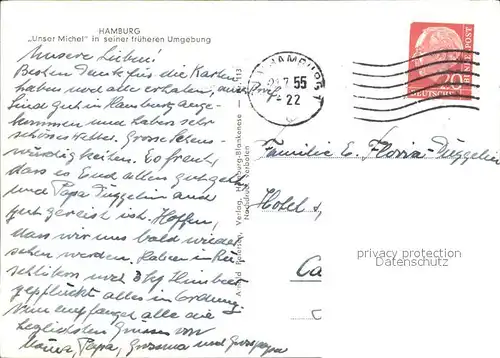 HAMBURG
„Unser Michel" in seiner früheren Umgebung
Unsere Lieben!
Besten Dank für die Karten
haben wir alle erhalten, auch
Sind gut in Hamburg ange-
kommen und haben sehr
schönes Wetter. Grosse Sehens-
würdigkeiten. Es freut,
dass es Euch allen gut geht
und Papa Düggelin
gut gereist ist. Hoffen,
dass wir uns bald wieder
sehen werden. Haben in Rü-
schlikon 3 kg Himbeer
gepflückt alles in Ordnung.
empfanget alle die
herzlichsten Grüsse von
Mama, Papa, Grosmama und Grospapa
Verlag, Hamburg-Blankenese
Nachdruck verboten
113
HAMBURG
7.55
22
20
DEUTSCHE BUNDESPOST
Familie E. Düggelin
Hotel
Ca
privacy protection
Datenschutz